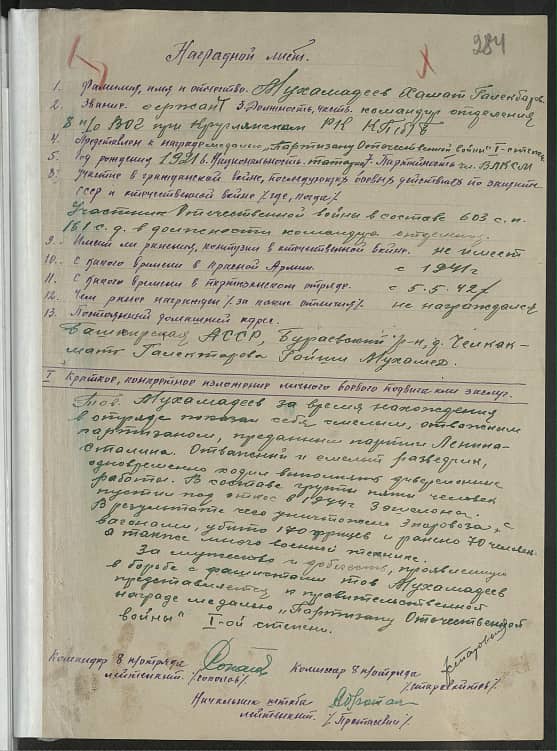 284
Наградной лист.
1. Фамилия, имя и отчество. Мухамадеев Хамат Галекбаров.
2. Звание. сержант 3. Должность, часть. командир отделения
8 п/о ВОГ при Круглянском РК КП/б/Б
4. Представлен к награде медалью "Партизану Отечественной войны" I-степени
5. Год рождения 1921 6. Национальность. татарин 7. Партийность чл. ВЛКСМ
8. Участие в гражданской войне, последующих боевых действиях по защите
СССР и отечественной войне /где, когда/
Участник Отечественной войны в составе 603 с.п.
161 с.д. в должности командира отделения.
9. Имеет ли ранения, контузии в отечественной войне. не имеет
10. С какого времени в Красной Армии. с 1941г
11. С какого времени в партизанском отряде. с 5.5.42г
12. Чем ранее награжден /за какие отличия/. не награждался
13. Постоянный домашний адрес.
Башкирская АССР, Бураевский р-н, д. Челкак-
мант Галекторова Гайши Мухамед.
I Краткое, конкретное изложение личного боевого подвига или заслуг.
Тов. Мухамадеев за время нахождения
в отряде показал себя смелым, отважным
партизаном, преданным партии Ленина-
Сталина. Отважный и смелый разведчик,
одновременно ходил выполнять диверсионные
работы. В составе группы пяти человек
пустил под откос в 1944г 3 эшелона.
В результате чего уничтожено 3 паровоза, с
вагонами, убито 140 фрицев и ранено 70 человек
а также много военной техники.
За мужество и доблесть, проявленную
в борьбе с фашистами тов Мухамадеев
представляется к правительственной
награде медалью "Партизану Отечественной
войны" I-ой степени.
Командир 8 п/отряда
лейтенант. /Соколов/
Комиссар 8 п/отряда
/Старовойтов/
Начальник штаба
лейтенант. /Протасевич/